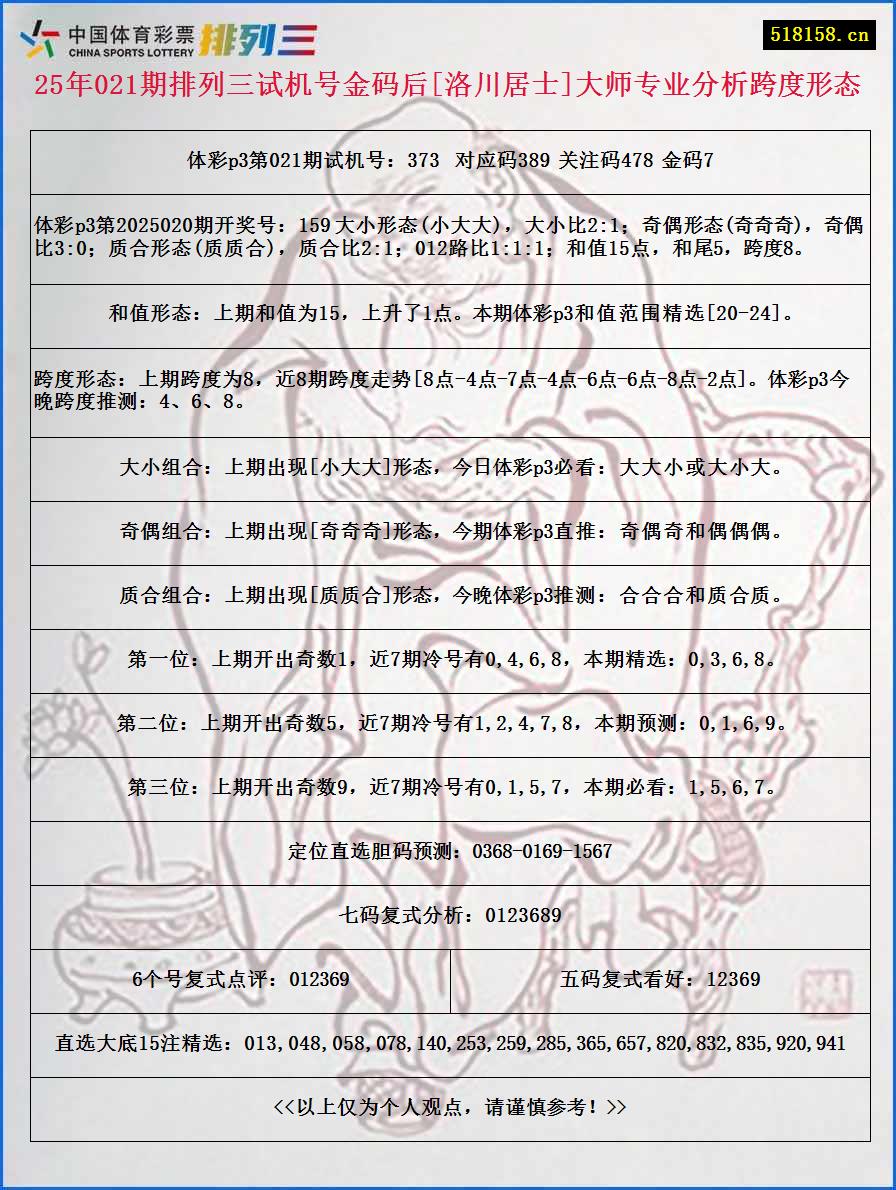 中国体育彩票 排列三
CHINA SPORTS LOTTERY
518158.cn
25年021期排列三试机号金码后[洛川居士]大师专业分析跨度形态
体彩p3第021期试机号：373 对应码389 关注码478 金码7
体彩p3第2025020期开奖号：159 大小形态(小大大)，大小比2:1；奇偶形态(奇奇奇)，奇偶
比3:0；质合形态(质质合)，质合比2:1；012路比1:1:1；和值15点，和尾5，跨度8。
和值形态：上期和值为15，上升了1点。本期体彩p3和值范围精选[20-24]。
跨度形态：上期跨度为8，近8期跨度走势[8点-4点-7点-4点-6点-6点-8点-2点]。体彩p3今
晚跨度推测：4、6、8。
大小组合：上期出现[小大大]形态，今日体彩p3必看：大大小或大小大。
奇偶组合：上期出现[奇奇奇]形态，今期体彩p3直推：奇偶奇和偶偶偶。
质合组合：上期出现[质质合]形态，今晚体彩p3推测：合合合和质合质。
第一位：上期开出奇数1，近7期冷号有0,4,6,8，本期精选：0,3,6,8。
第二位：上期开出奇数5，近7期冷号有1,2,4,7,8，本期预测：0,1,6,9。
第三位：上期开出奇数9，近7期冷号有0,1,5,7，本期必看：1,5,6,7。
定位直选胆码预测：0368-0169-1567
七码复式分析：0123689
6个号复式点评：012369
五码复式看好：12369
直选大底15注精选：013,048,058,078,140,253,259,285,365,657,820,832,835,920,941
<<以上仅为个人观点，请谨慎参考！>>